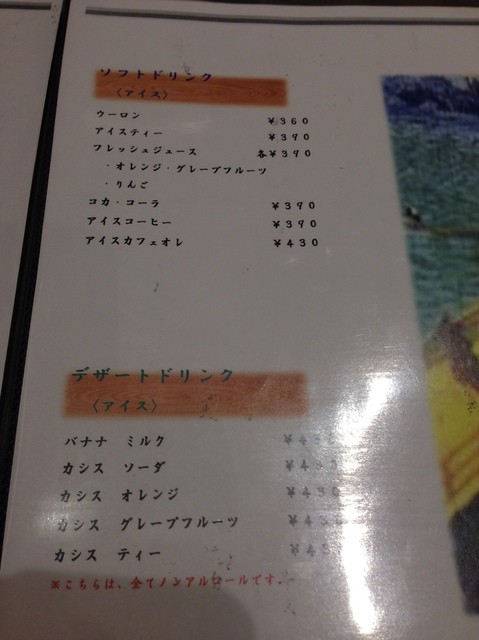 ソフトドリンク
〈アイス〉
ウーロン ¥360
アイスティー ¥390
フレッシュジュース 各¥390
・オレンジ・グレープフルーツ
・りんご
コカ・コーラ ¥390
アイスコーヒー ¥390
アイスカフェオレ ¥430
デザートドリンク
〈アイス〉
バナナ ミルク
カシス ソーダ
カシス オレンジ ¥430
カシス グレープフルーツ
カシス ティー
※こちらは、全てノンアルコールです。